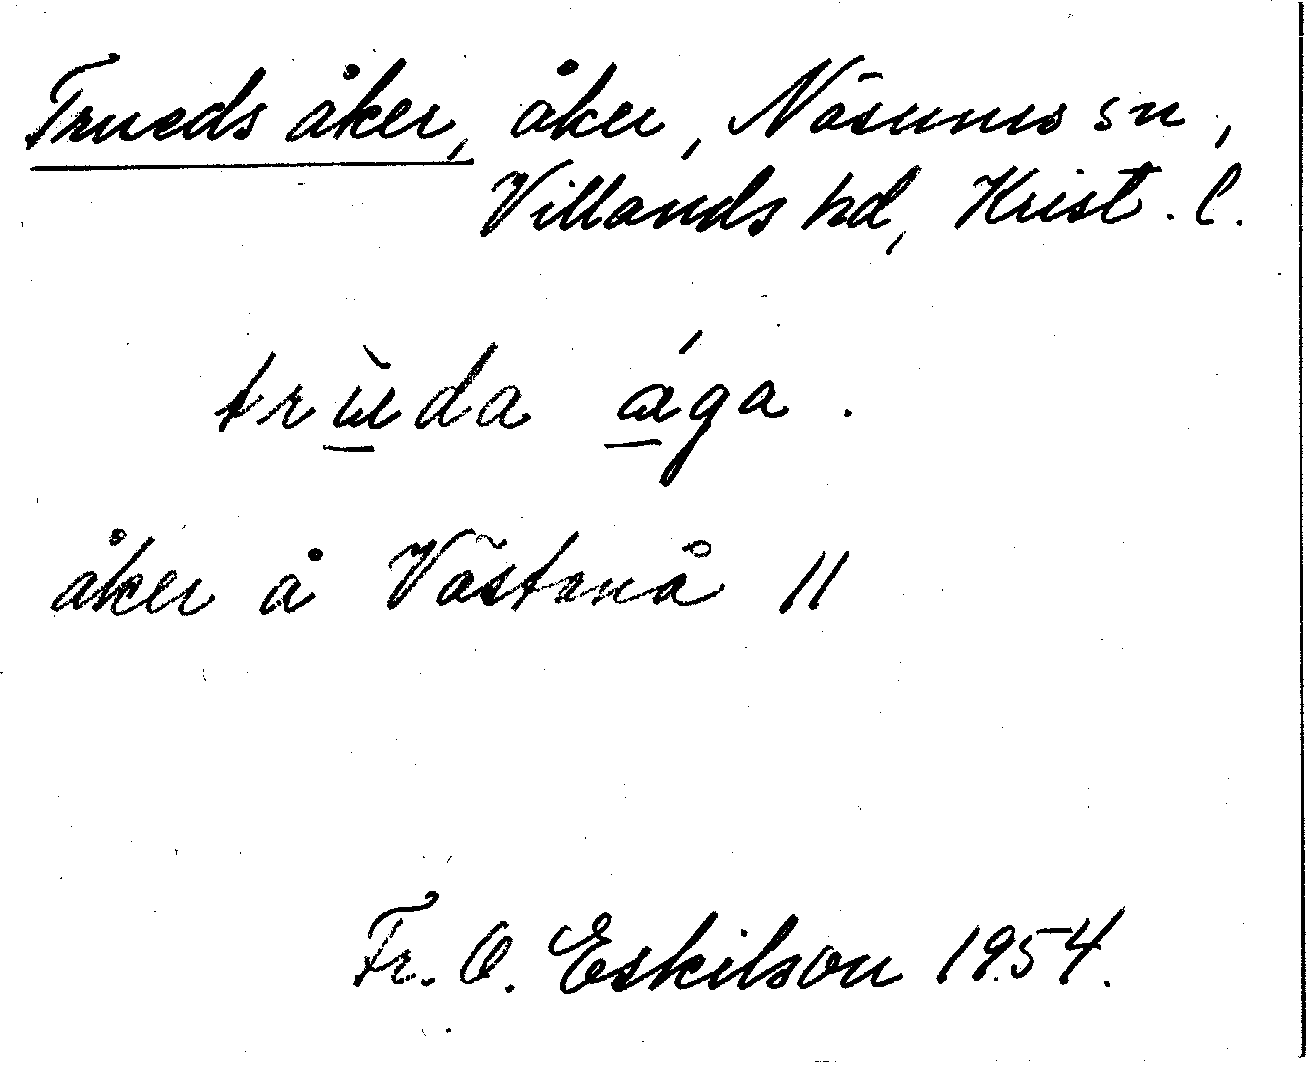 Trueds åker, åker, Näsums sn,
Villands hd, Krist. l.
trùda ága.
åker å Västanå 11
Fr. O. Eskilson 1954.